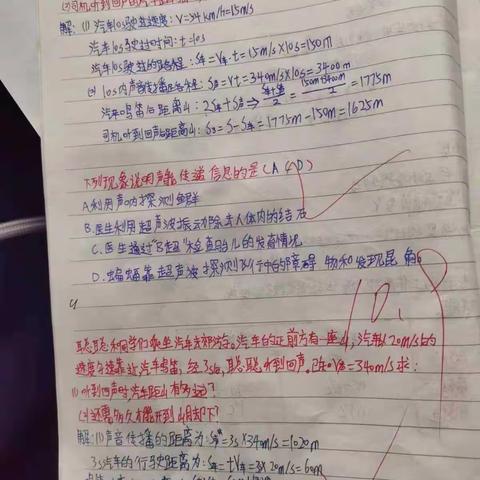 解：(1) 汽车10s驶过速度：V=54km/h=15m/s
汽车10s驶过时间：t=10s
汽车10s驶过的路程：S车=V车·t=15m/s×10s=150m
(2) 10s内声音传播的路程：S声=Vt=340m/s×10s=3400m
汽车鸣笛后距离山：2S车+S声⇒ S车+S声/2 = 150m+3400m/2 =1775m
司机听到回声的距离山：S3=S-S车=1775m-150m=1625m
下列现象说明声能传递信息的是(ACD)
A.利用声呐探测鱼群
B.医生利用超声波振动除去人体内的结石
C.医生通过"B超"检查胎儿的发育情况
D.蝙蝠靠超声波探测飞行中的障碍物和发现昆
4
聪聪和同学们乘坐汽车去郊游。汽车的正前方有一座山，汽车以20m/s的
速度匀速靠近汽车鸣笛，经3s后，聪聪听到回声。已知V声=340m/s求：
(1)听到回声时汽车距山有多远？
(2)还需多久才能开到山脚下？
解：(1)声音传播的距离为：S声=3s×340m/s=1020m
3s汽车的行驶距离为：S车=tV车=3×20m/s=60m